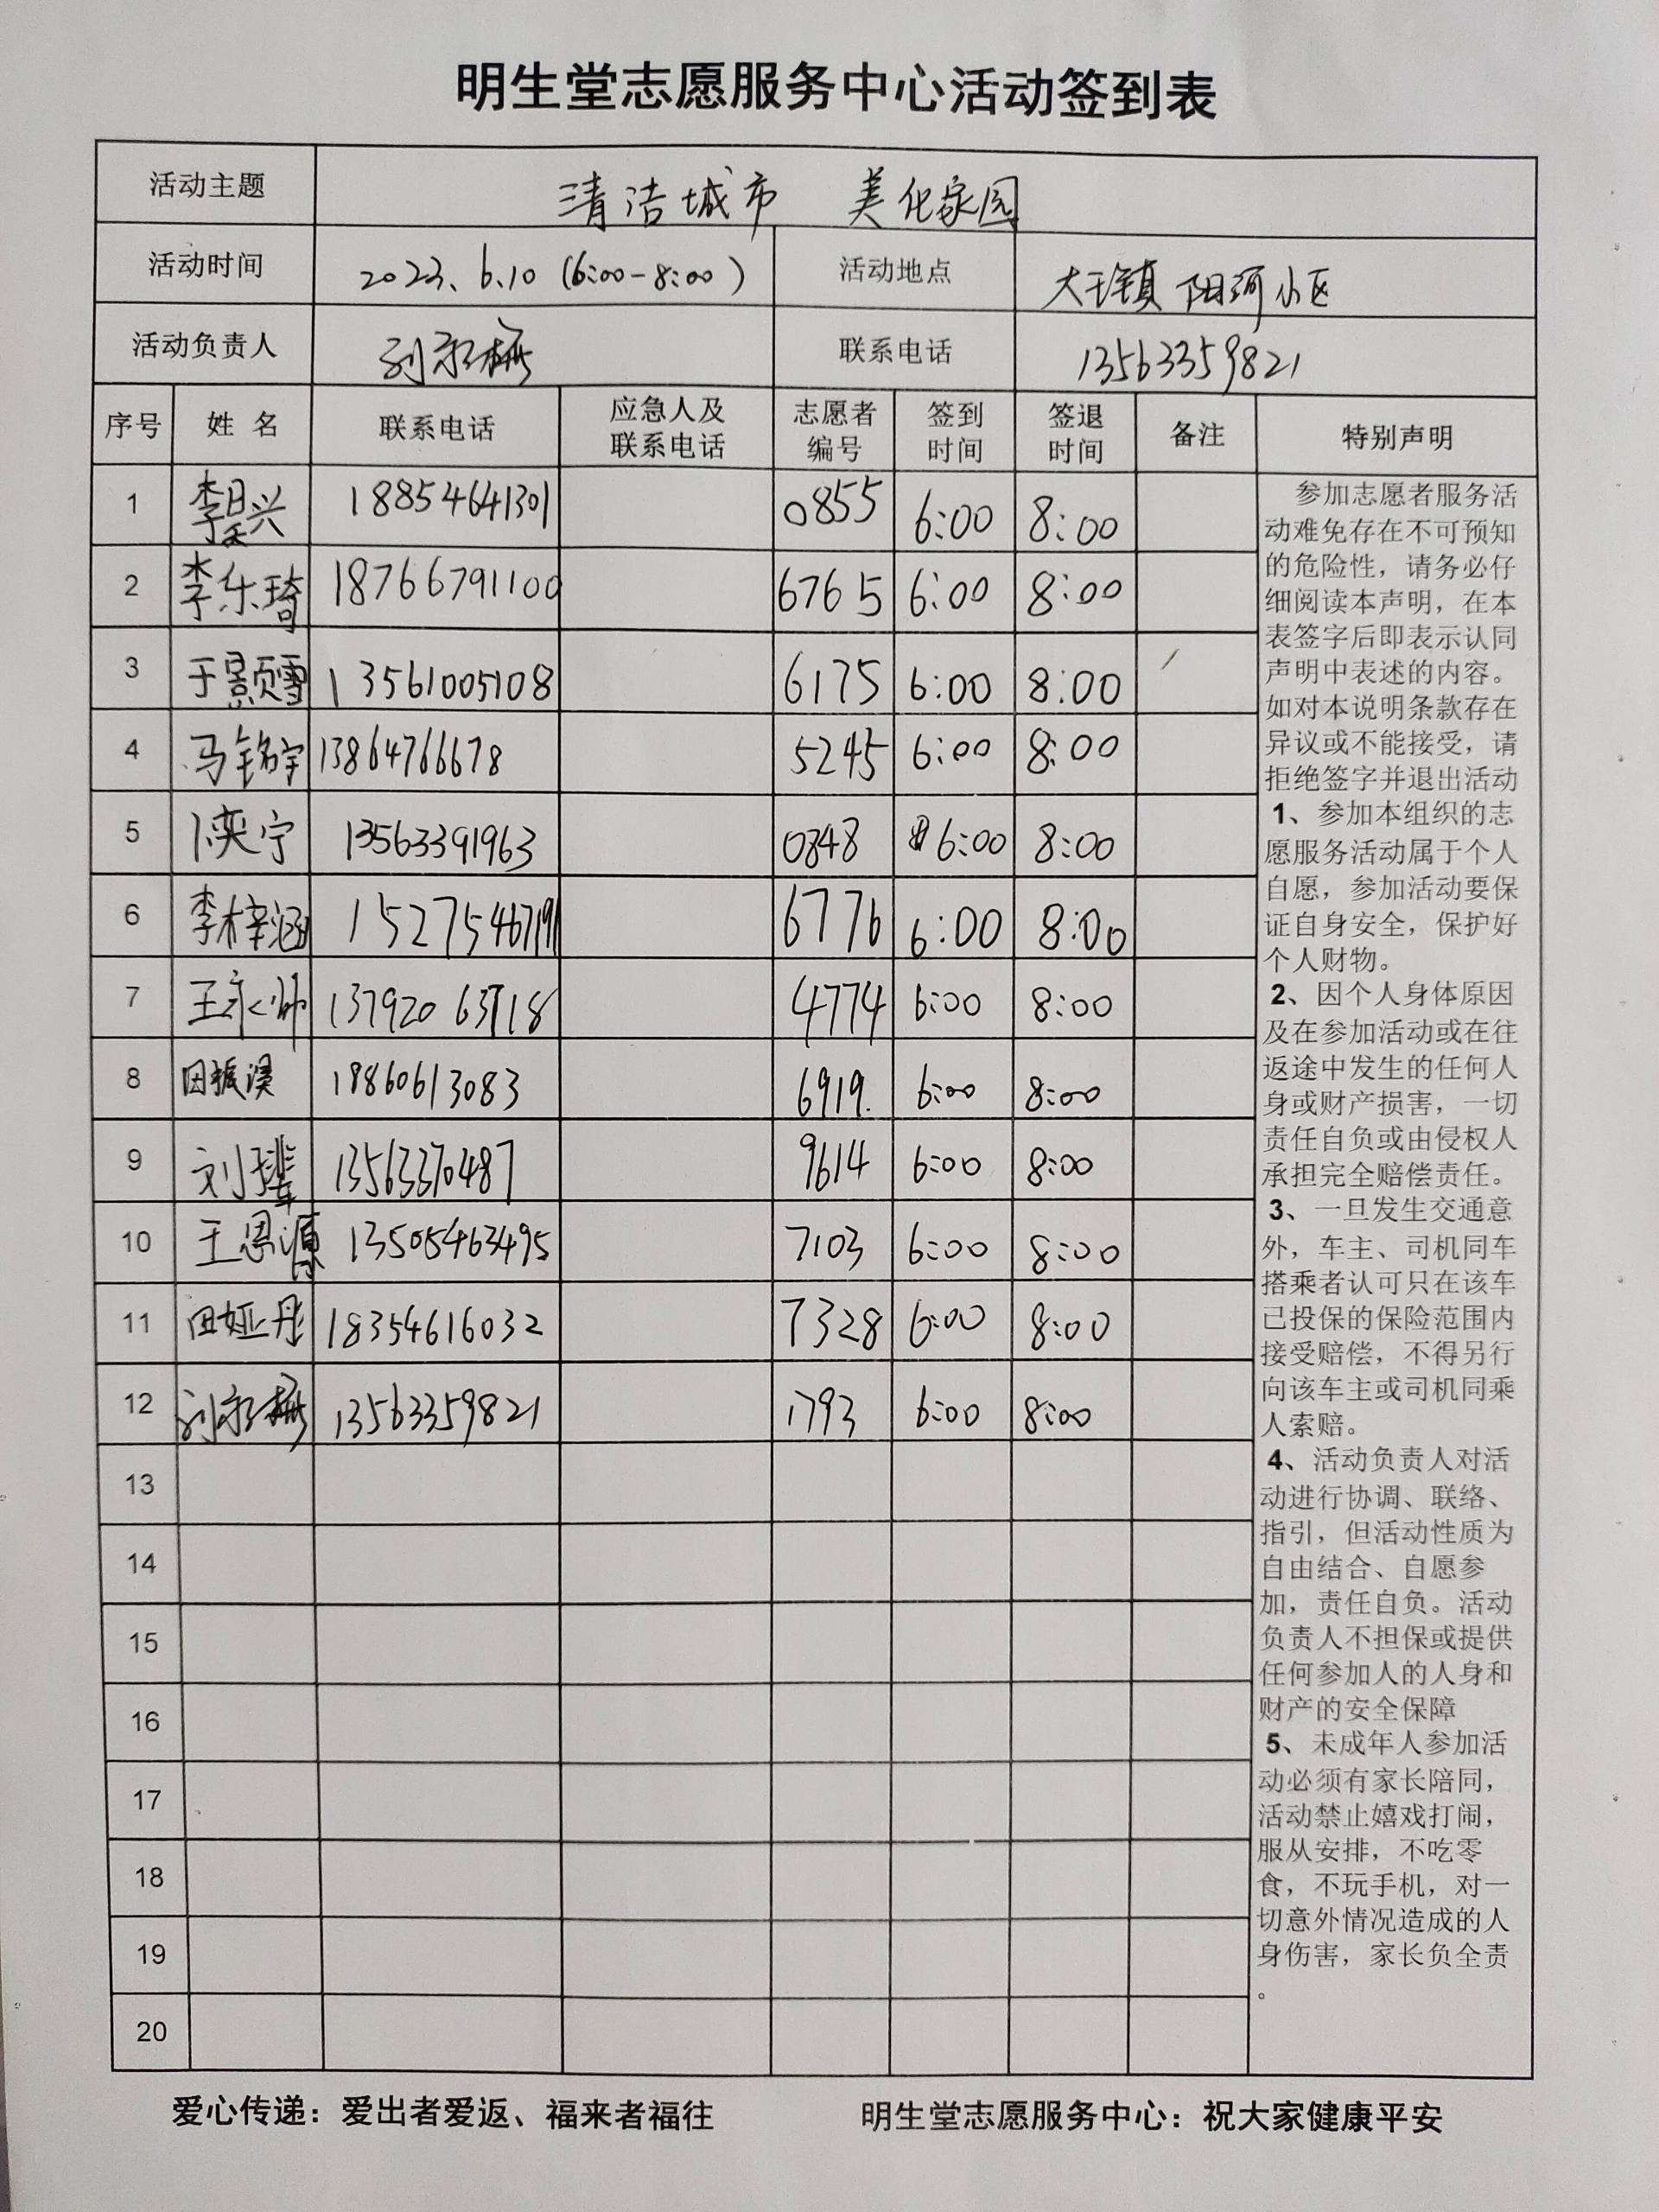 明生堂志愿服务中心活动签到表
活动主题 清洁城市 美化家园
活动时间 2023.6.10 (6:00-8:00) 活动地点 大王镇 阳河小区
活动负责人 联系电话 13563359821
序号 姓名 联系电话 应急人及联系电话 志愿者编号 签到时间 签退时间 备注 特别声明
1 李昊兴 18854641301 0855 6:00 8:00
2 李乐琦 18766791100 6765 6:00 8:00
3 于景雪 13561005108 6175 6:00 8:00
4 马铭宇 13864766678 5245 6:00 8:00
5 奕宁 13563391963 0848 6:00 8:00
6 李梓涵 15275467191 6776 6:00 8:00
7 王永帅 13792063718 4774 6:00 8:00
8 田振淏 18860613083 6919. 6:00 8:00
9 刘 13563370487 9614 6:00 8:00
10 王恩源 13505463495 7103 6:00 8:00
11 田娅彤 18354616032 7328 6:00 8:00
12 13563359821 1793 6:00 8:00
13
14
15
16
17
18
19
20
参加志愿者服务活
动难免存在不可预知
的危险性，请务必仔
细阅读本声明，在本
表签字后即表示认同
声明中表述的内容。
如对本说明条款存在
异议或不能接受，请
拒绝签字并退出活动
1、参加本组织的志
愿服务活动属于个人
自愿，参加活动要保
证自身安全，保护好
个人财物。
2、因个人身体原因
及在参加活动或在往
返途中发生的任何人
身或财产损害，一切
责任自负或由侵权人
承担完全赔偿责任。
3、一旦发生交通意
外，车主、司机同车
搭乘者认可只在该车
已投保的保险范围内
接受赔偿，不得另行
向该车主或司机同乘
人索赔。
4、活动负责人对活
动进行协调、联络、
指引，但活动性质为
自由结合、自愿参
加，责任自负。活动
负责人不担保或提供
任何参加人的人身和
财产的安全保障
5、未成年人参加活
动必须有家长陪同，
活动禁止嬉戏打闹，
服从安排，不吃零
食，不玩手机，对一
切意外情况造成的人
身伤害，家长负全责
。
爱心传递：爱出者爱返、福来者福往 明生堂志愿服务中心：祝大家健康平安